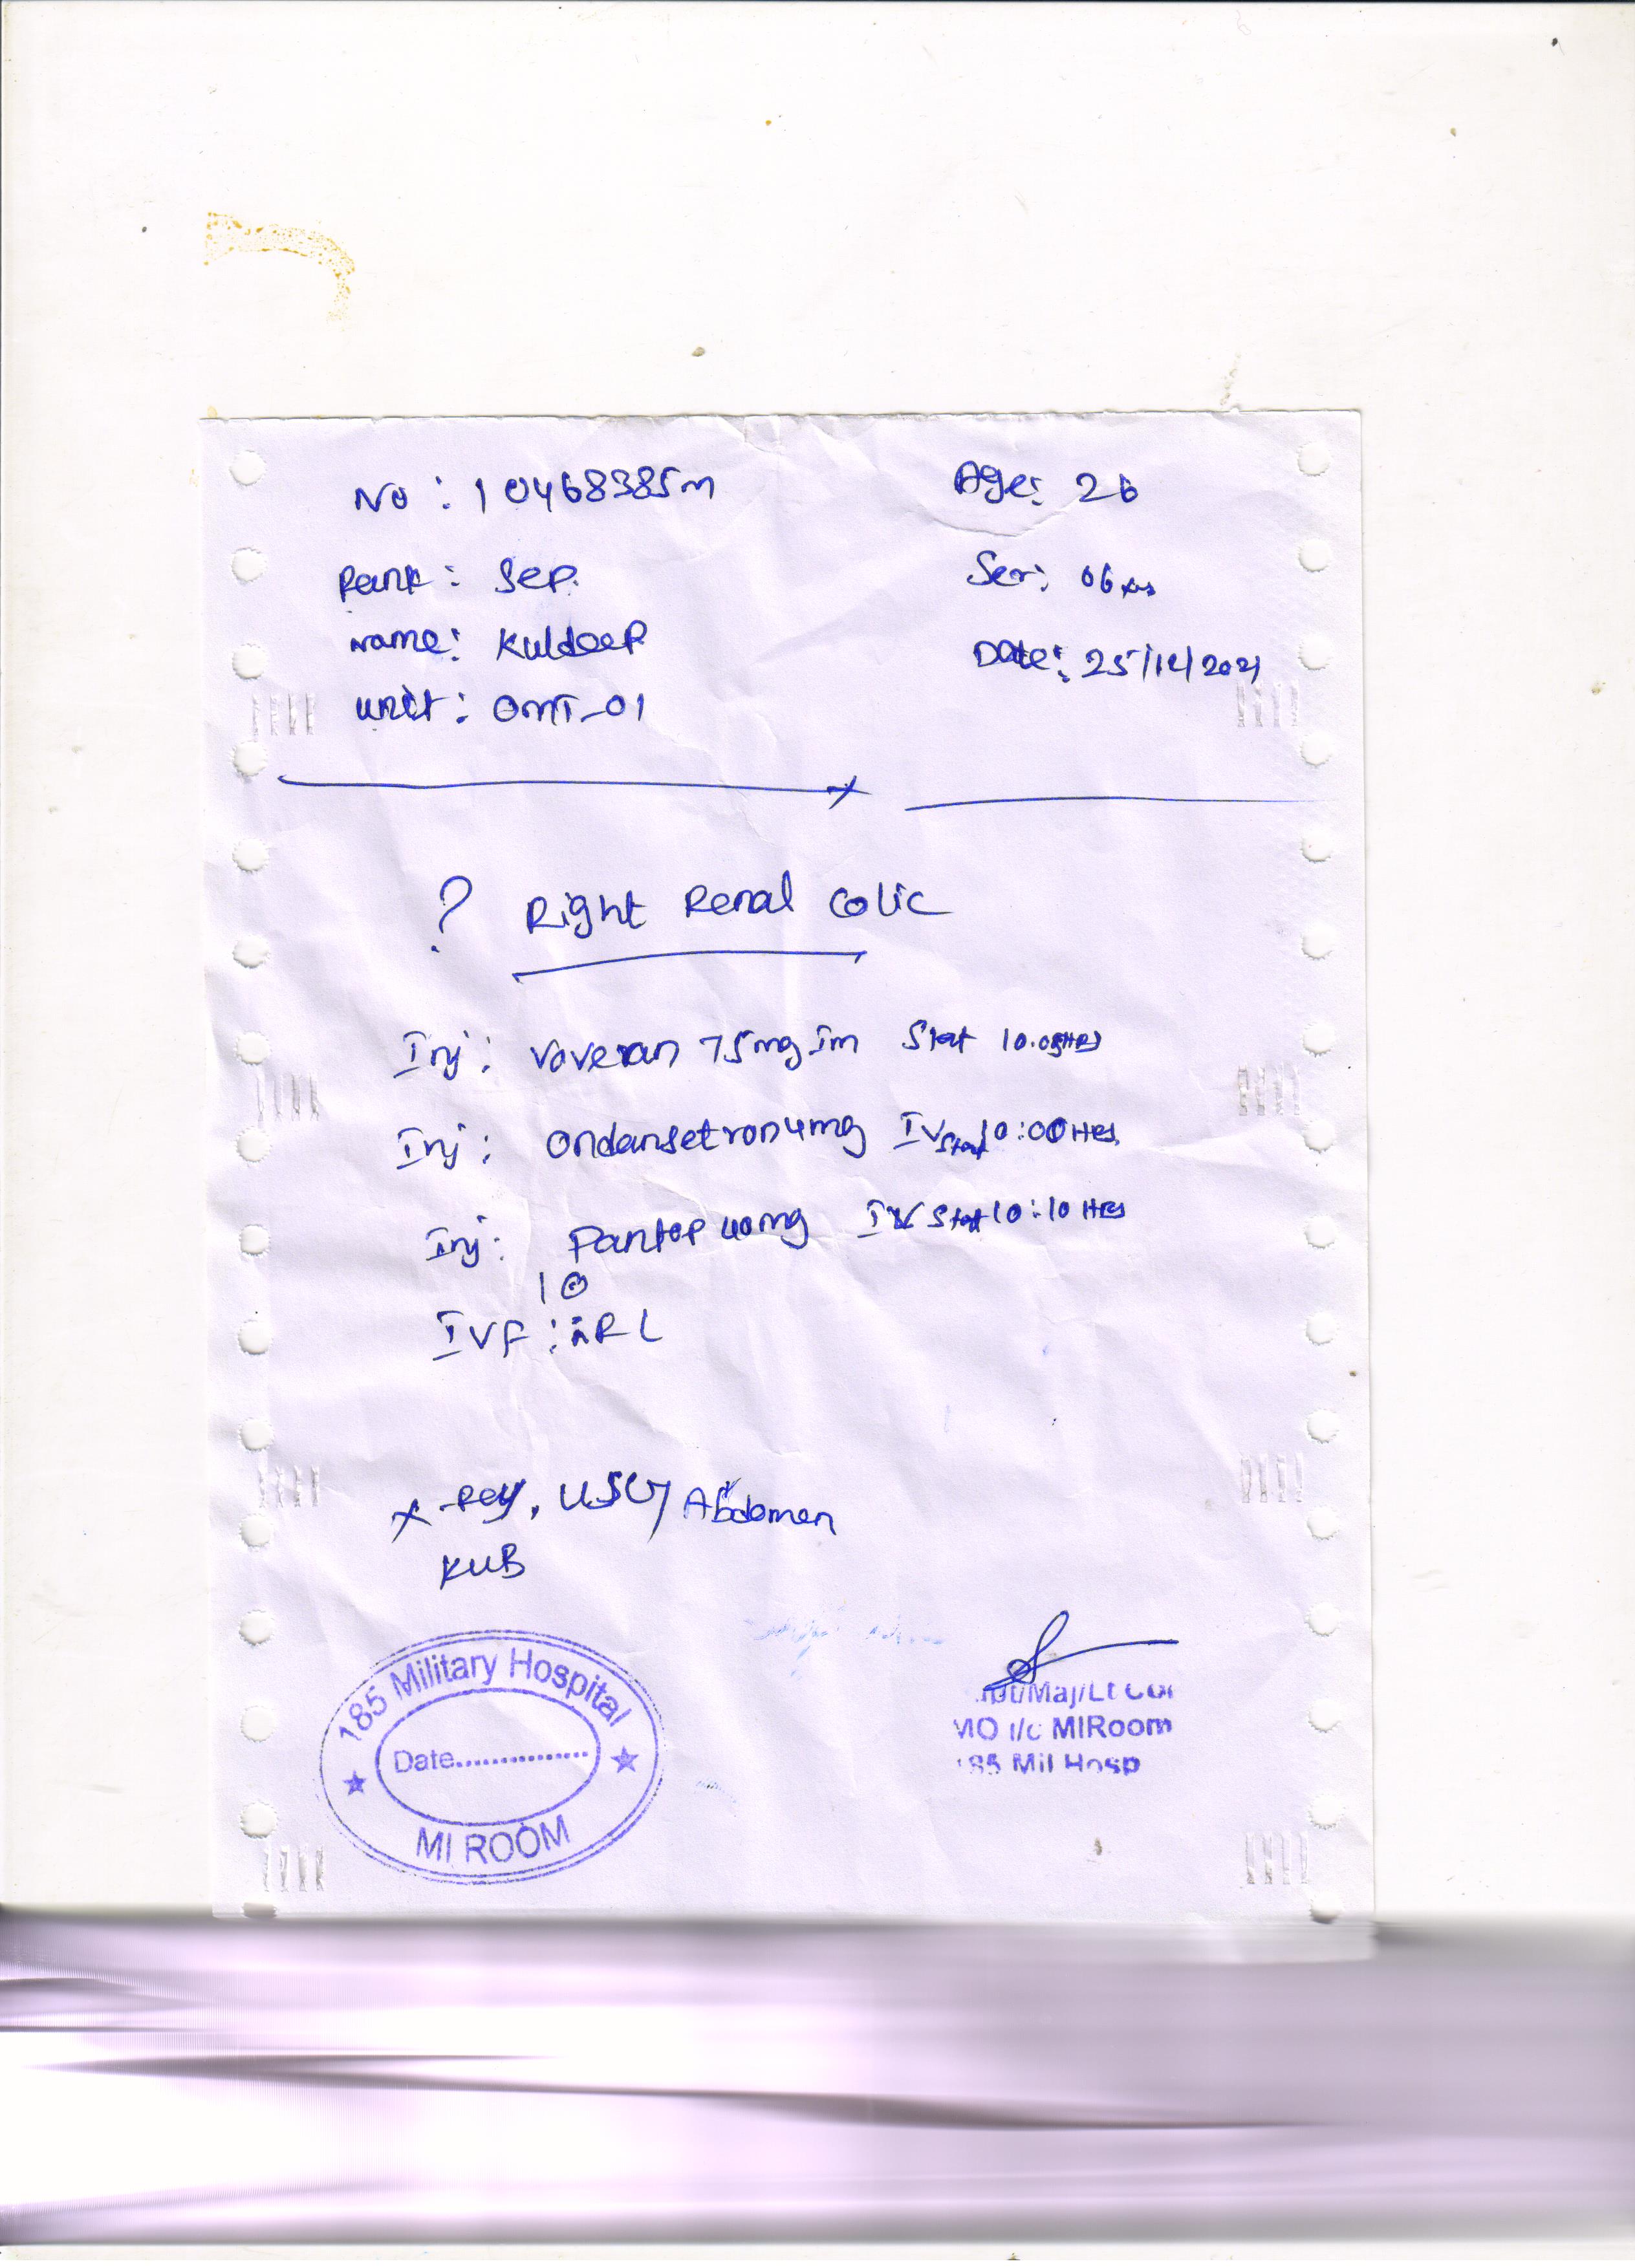 No : 10468385m
Age: 26
Rank : Sep.
Ser: 06 yrs
Name: Kuldeep
Date: 25/12/2021
Unit : OMT-01
? Right Renal Colic
Inj : Voveran 75mg Im Stat 10.05HRS
Inj : Ondansetron 4mg IV Stat 10:00 HRS
Inj : Pantop 40mg IV Stat 10:10 HRS
10
IVF : RL
X-Ray, USG Abdomen
KUB
185 Military Hospital
Date...............
MI ROOM
Maj/Lt Col
MO I/c MIRoom
185 Mil Hosp